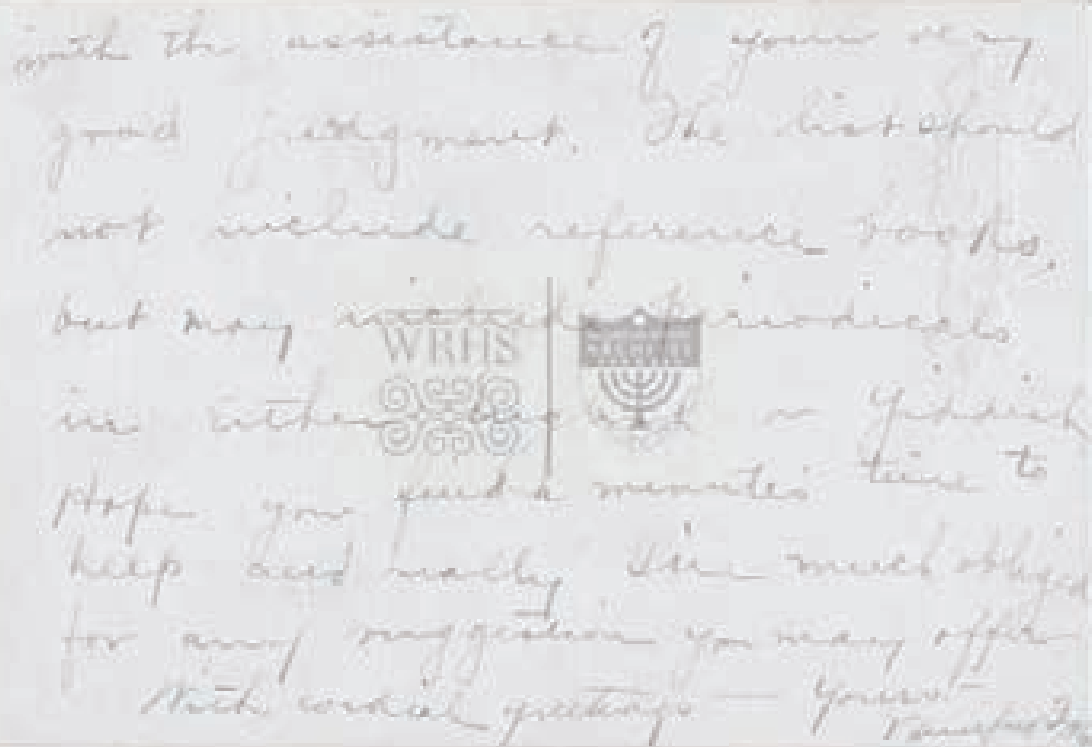 with the assistance of your very
good judgment. The list should
not include reference books,
but may include periodicals
WRHS
in either or Yiddish
Hope you find a minute's time to
help and really I'm much obliged
for any suggestion you may offer
With cordial greetings — Yours